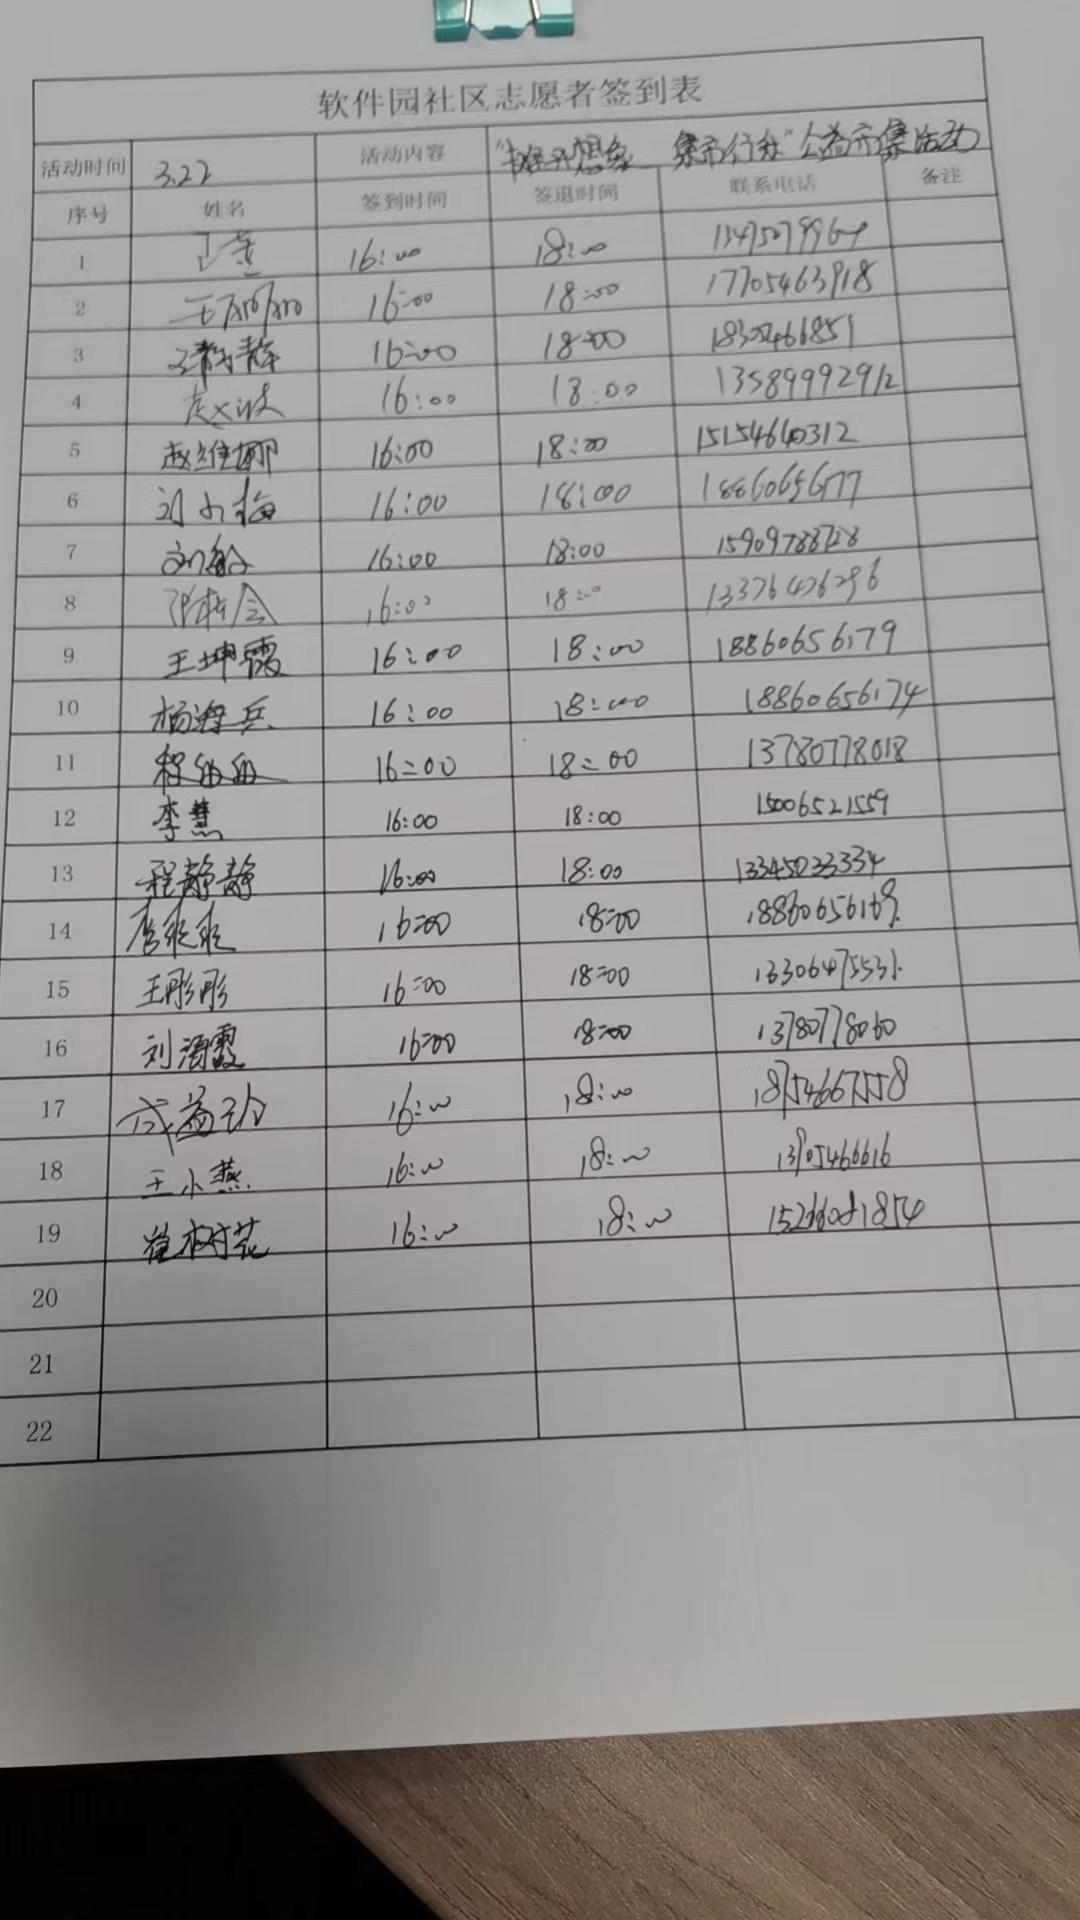 软件园社区志愿者签到表
活动时间 3.22 活动内容 "摊开想象 集市行知"公益市集活动
序号 姓名 签到时间 签退时间 联系电话 备注
1 16:00 18:00
2 王丽丽 16:00 18:00 17705463918
3 王静静 16:00 18:00
4 16:00 18:00 13589992912
5 赵维娜 16:00 18:00 15154640312
6 刘小梅 16:00 18:00
7 刘敏 16:00 18:00
8 16:00 18:00 13376426296
9 王坤霞 16:00 18:00 18860656179
10 杨海兵 16:00 18:00 18860656174
11 16:00 18:00 13780778018
12 李慧 16:00 18:00 15006521559
13 程静静 16:00 18:00 13345033334
14 16:00 18:00 18860656169
15 王彤彤 16:00 18:00 13306475531
16 刘海霞 16:00 18:00 13780778060
17 16:00 18:00 18754667558
18 王小燕 16:00 18:00 13905466616
19 崔树花 16:00 18:00
20
21
22